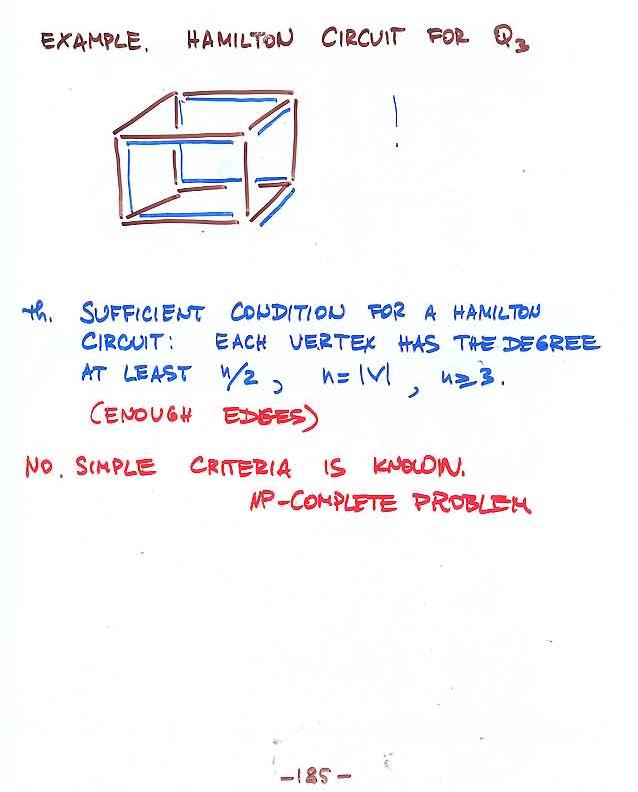 EXAMPLE. HAMILTON CIRCUIT FOR Q₃
!
th. SUFFICIENT CONDITION FOR A HAMILTON
CIRCUIT: EACH VERTEX HAS THE DEGREE
AT LEAST n/2, n=|V|, n≥3.
(ENOUGH EDGES)
NO. SIMPLE CRITERIA IS KNOWN.
NP-COMPLETE PROBLEM
-185-